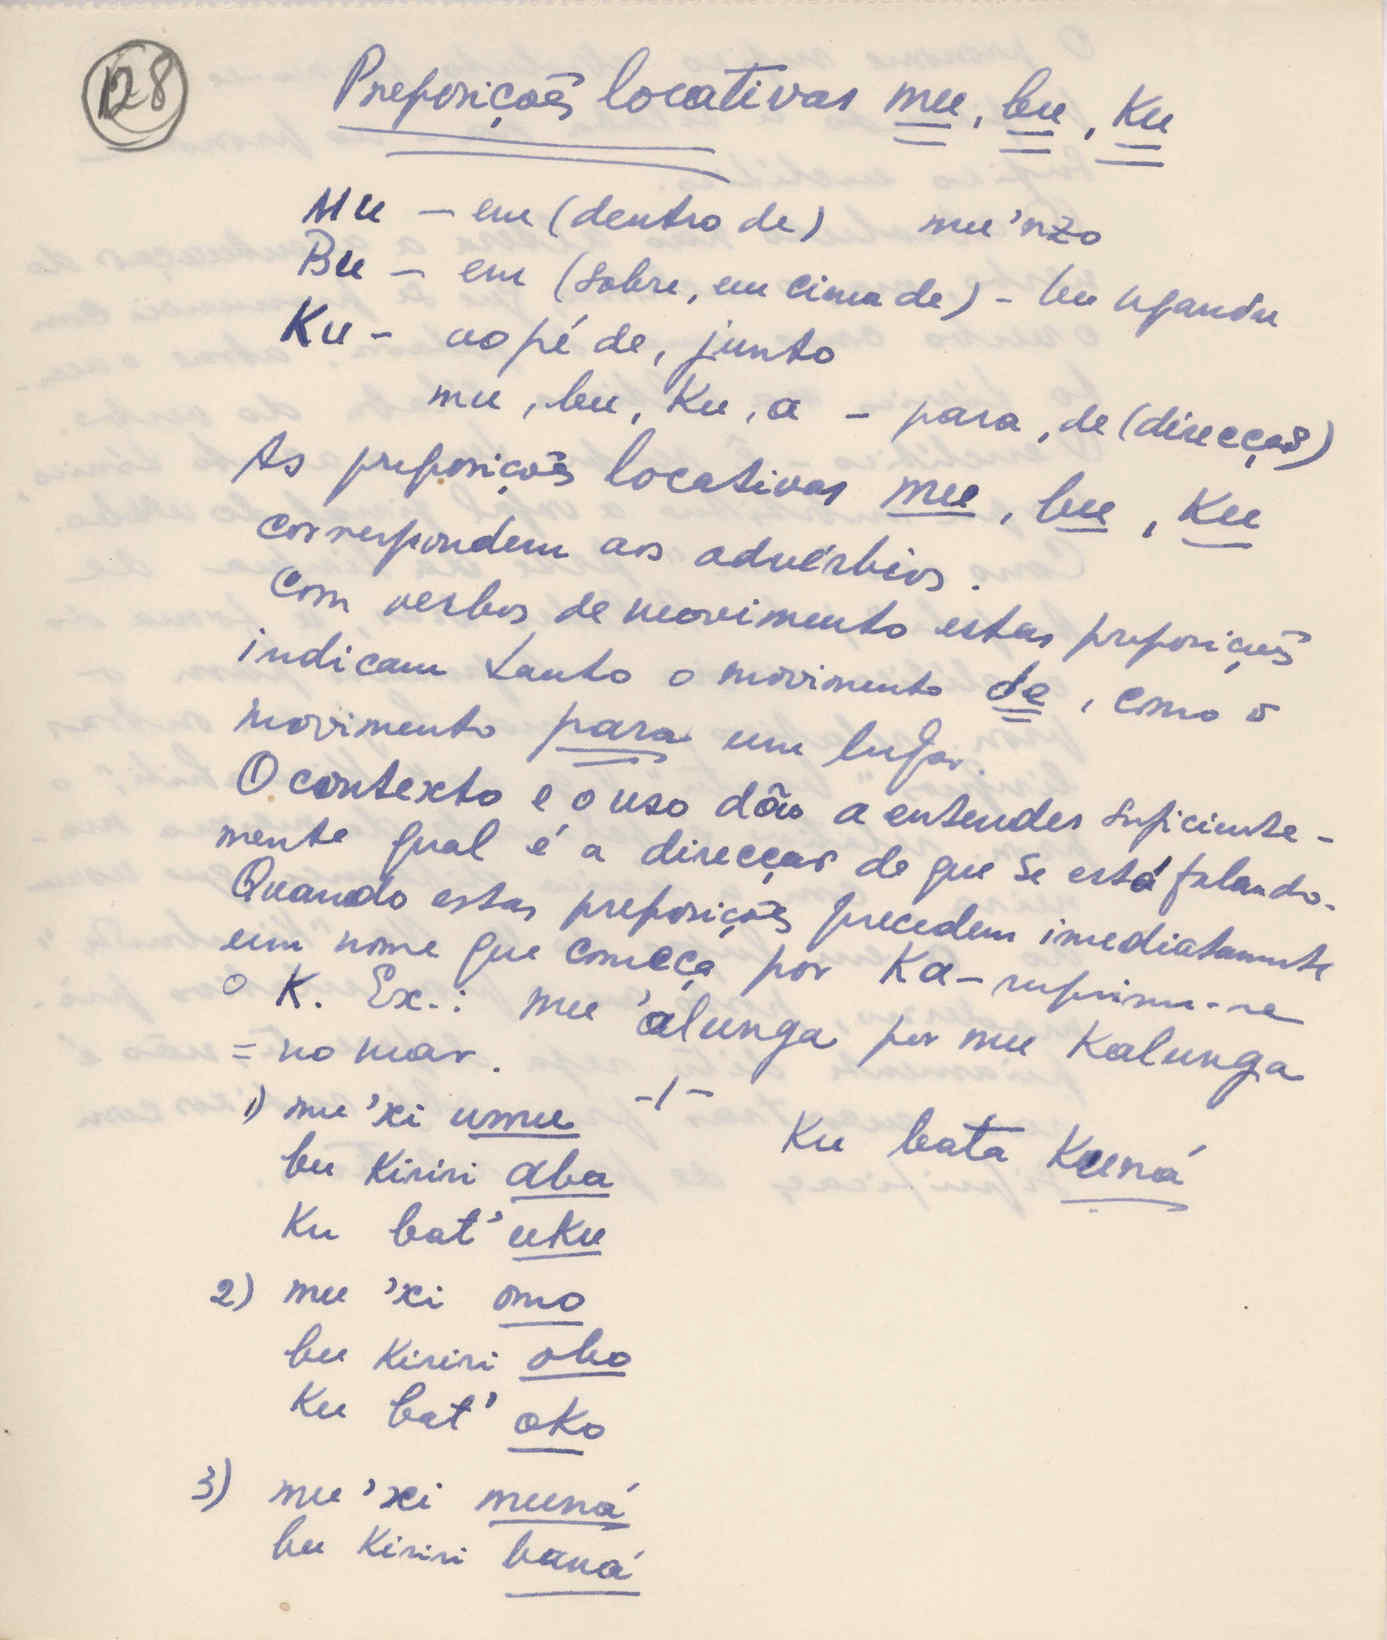 128
Preposições locativas mu, bu, Ku
Mu — em (dentro de) mu'nzo
Bu — em (sobre, em cima de) - bu ngandu
Ku - ao pé de, junto
mu, bu, Ku, a - para, de (direcção)
As preposições locativas mu, bu, Ku
correspondem aos advérbios.
Com verbos de movimento estas preposições
indicam tanto o movimento de, como o
movimento para um lugar.
O contexto e o uso dão a entender suficiente-
mente qual é a direcção de que se está falando.
Quando estas preposições precedem imediatamente
um nome que começa por Ka- suprime-se
o K. Ex.: mu 'alunga por mu Kalunga
= no mar.
-/-
1) mu 'xi umu
bu Kiriri aba
Ku bat' uku
Ku bata Kuná
2) mu 'xi omo
bu Kiriri obo
Ku bat' oko
3) mu 'xi muná
bu Kiriri baná